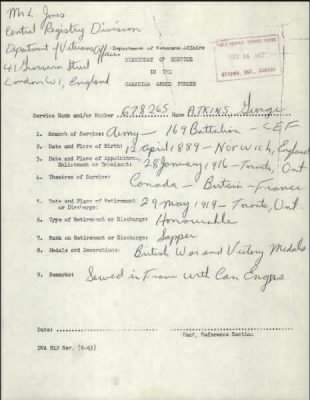 Mr L. Jones
Central Registry Division
Department of Veterans Affairs
Department of Veterans Affairs
41 Grosvenor Street
STATEMENT OF SERVICE
London W1, England
IN THE
CANADIAN ARMED FORCES
OTTAWA, ONT., CANADA
Service Rank and/or Number 678265 Name ATKINS, George
1. Branch of Service: Army - 169 Battalion - CEF
2. Date and Place of Birth: 12 April 1889 - Norwich, England
3. Date and Place of Appointment, Enlistment or Enrolment: 28 January 1916 - Toronto, Ont
4. Theatres of Service: Canada - Britain - France
5. Date and Place of Retirement or Discharge: 29 May 1919 - Toronto, Ont.
6. Type of Retirement or Discharge: Honourable
7. Rank on Retirement or Discharge: Sapper
8. Medals and Decorations: British War and Victory Medals
9. Remarks: Served in France with Can Engrs
Date:
Chief, Reference Section
DVA 812 Rev. (8-65)